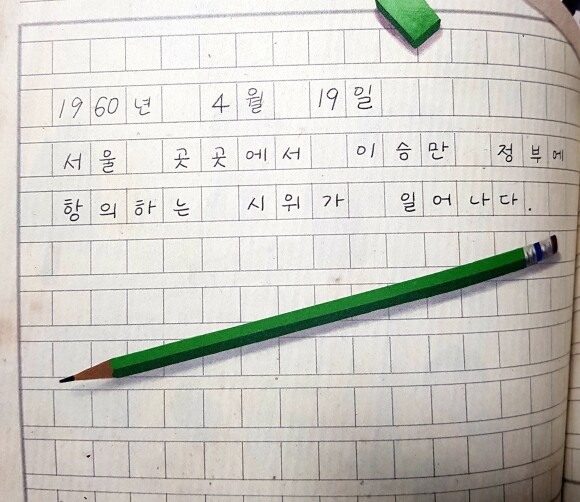 1960년 4월 19일
서울 곳곳에서 이승만 정부에
항의하는 시위가 일어나다.